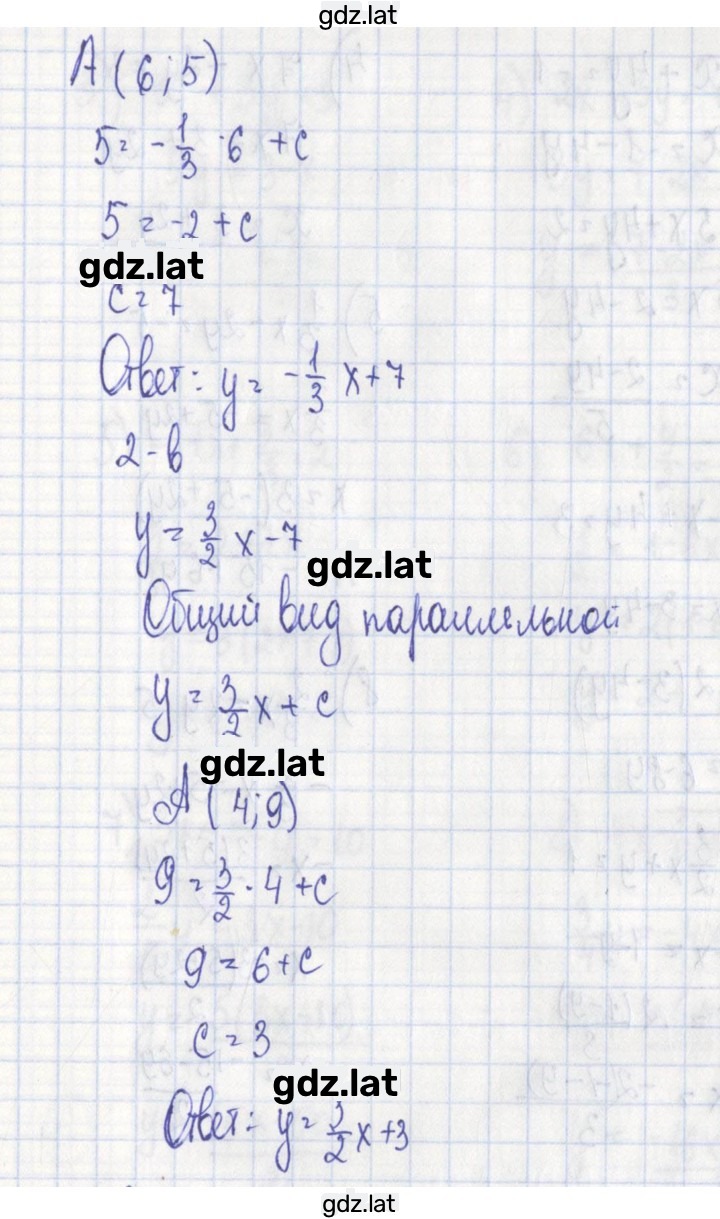 gdz.lat
A (6; 5)
5 = -1/3 · 6 + c
5 = -2 + c
gdz.lat
c = 7
Ответ: y = -1/3 x + 7
2-в
y = 3/2 x - 7
gdz.lat
Общий вид параллельной
y = 3/2 x + c
gdz.lat
A (4; 9)
9 = 3/2 · 4 + c
9 = 6 + c
c = 3
gdz.lat
Ответ: y = 3/2 x + 3
gdz.lat